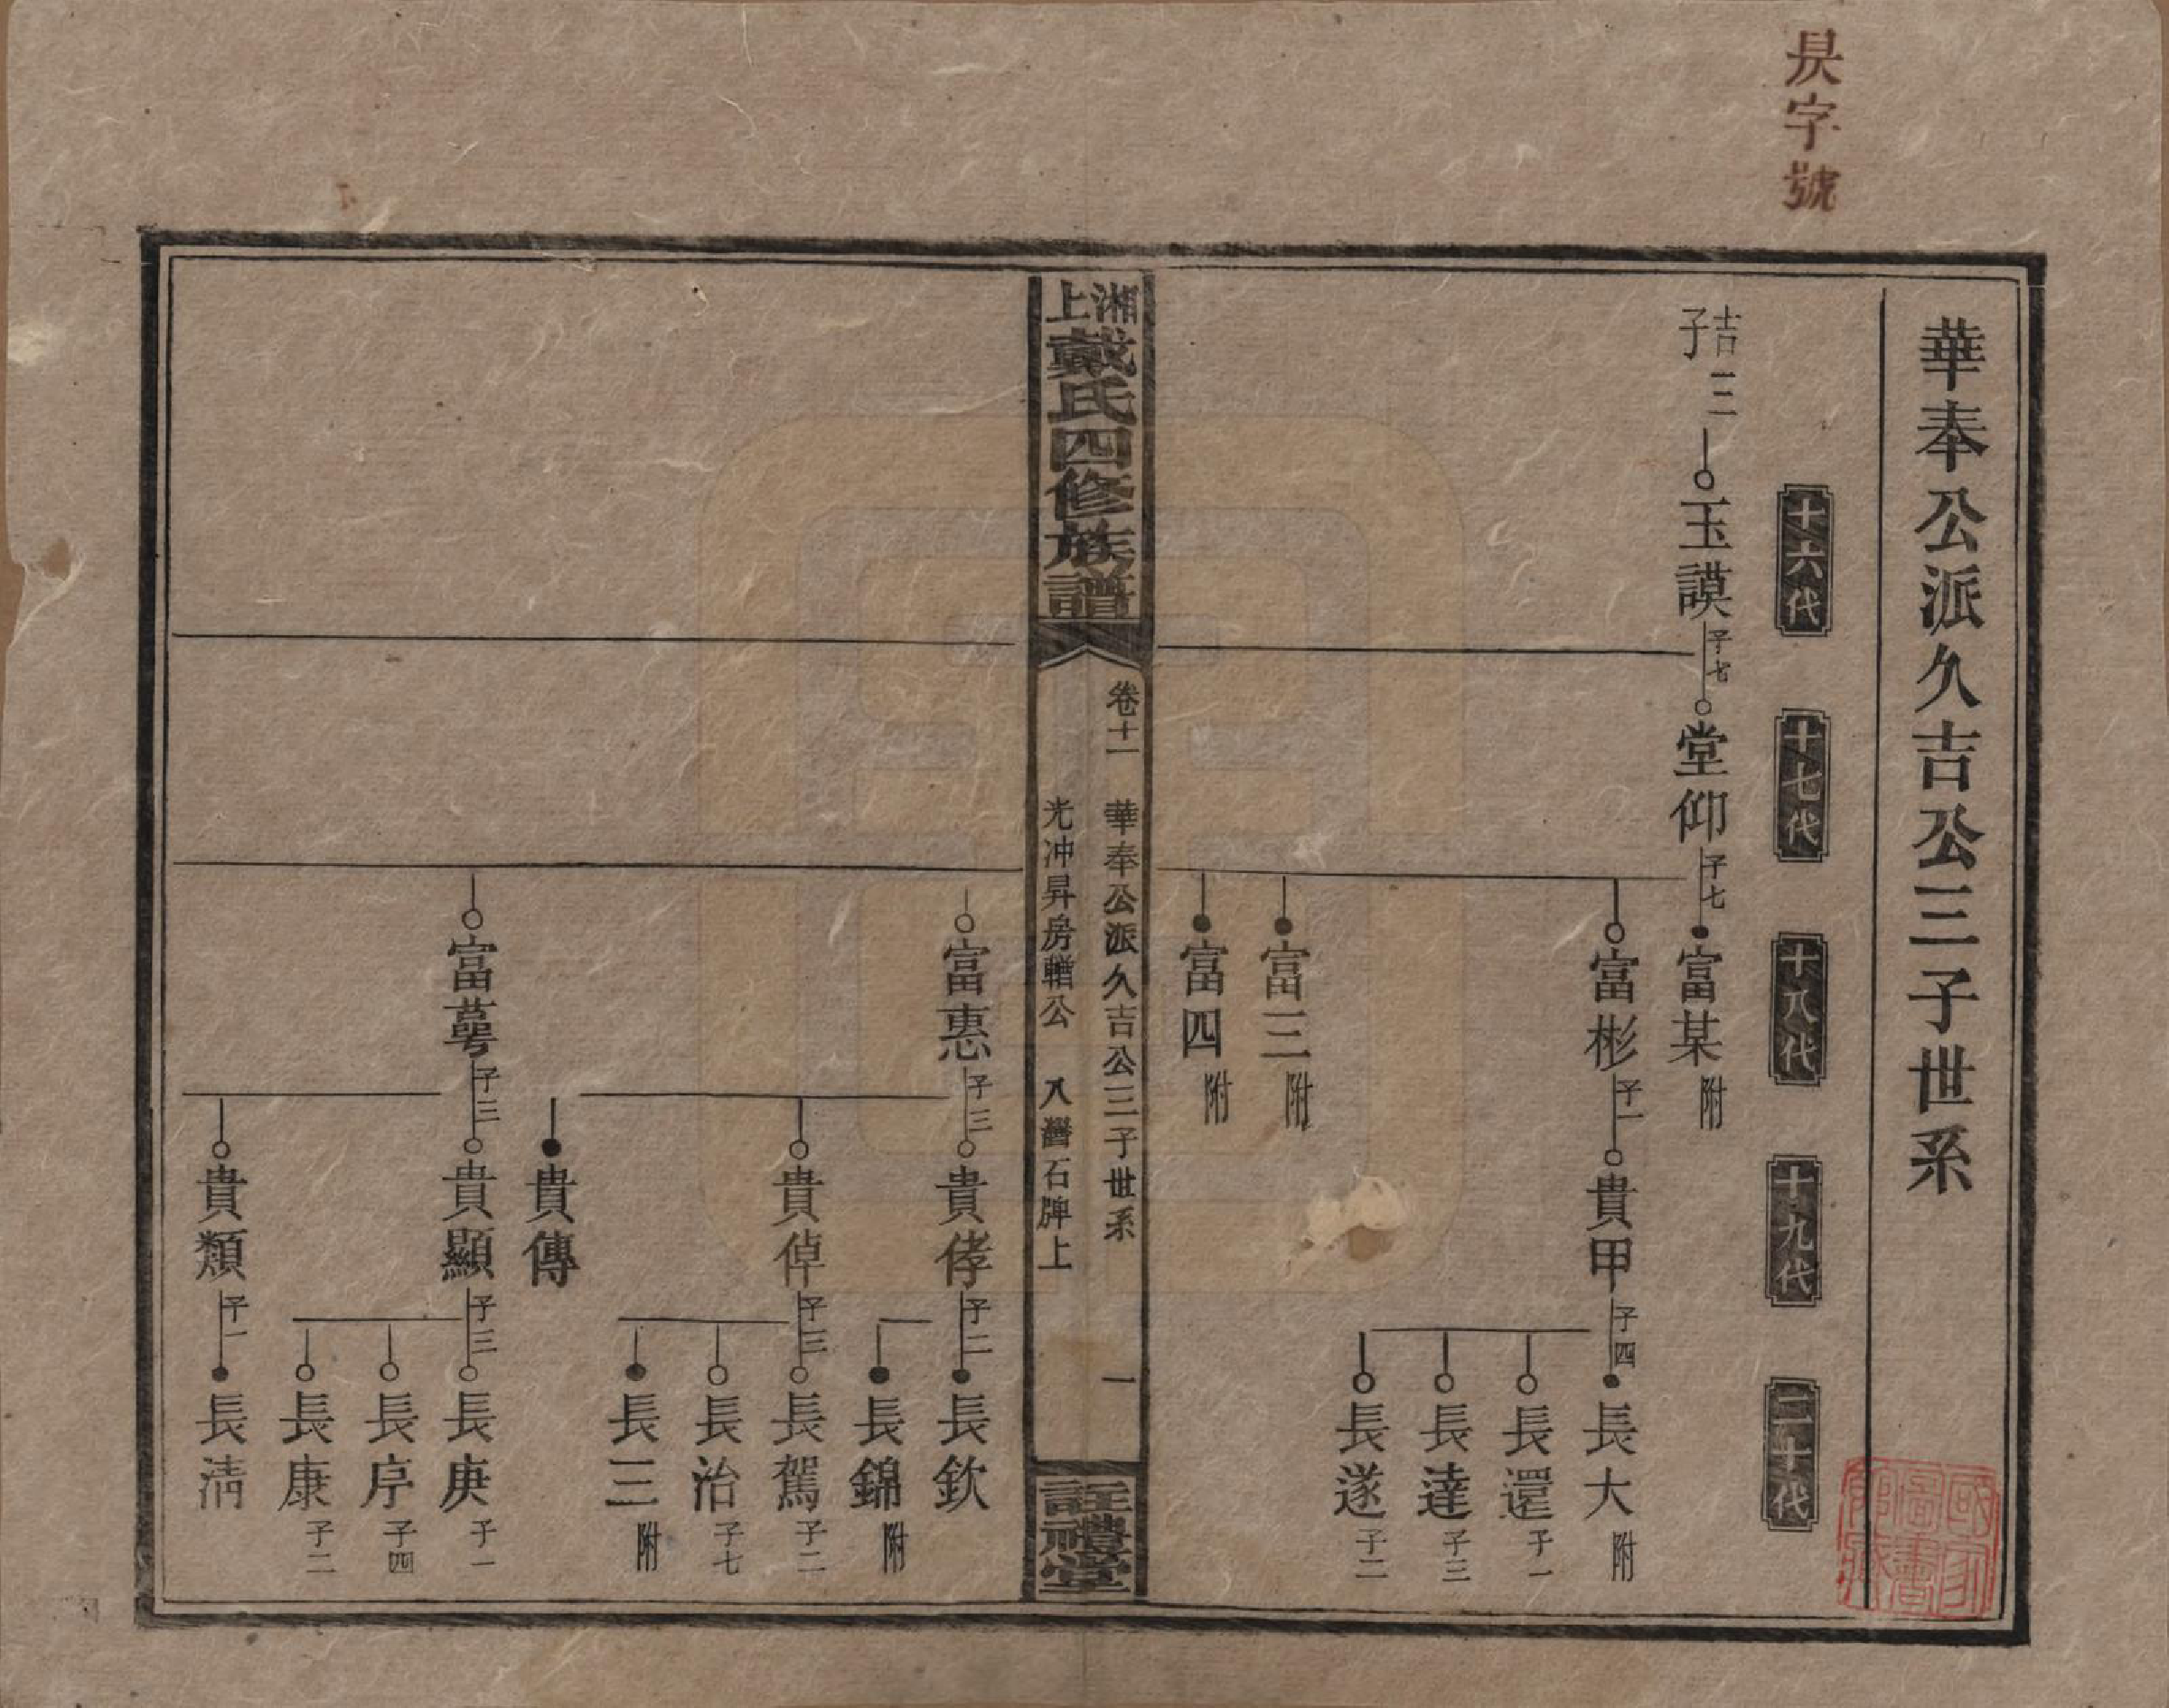 昃字號
華奉公派久吉公三子世系
十六代
十七代
十八代
十九代
二十代
吉三子
玉謨 子七
堂仰 子七
富某 附
富彬 子一
貴甲 子四
長大 附
長還 子一
長達 子三
長遂 子二
富三 附
富四 附
湘上戴氏四修族譜
卷十一 華奉公派久吉公三子世系 一
光冲昇房輶公 八甲石牌上
註禮堂
富惠 子三
貴侾 子二
長欽
長錦 附
貴倬 子三
長駕 子二
長治 子七
長三 附
貴傳
富萼 子三
貴顯 子三
長庚 子一
長序 子四
長康 子二
貴類 子一
長淸
國家圖書館藏